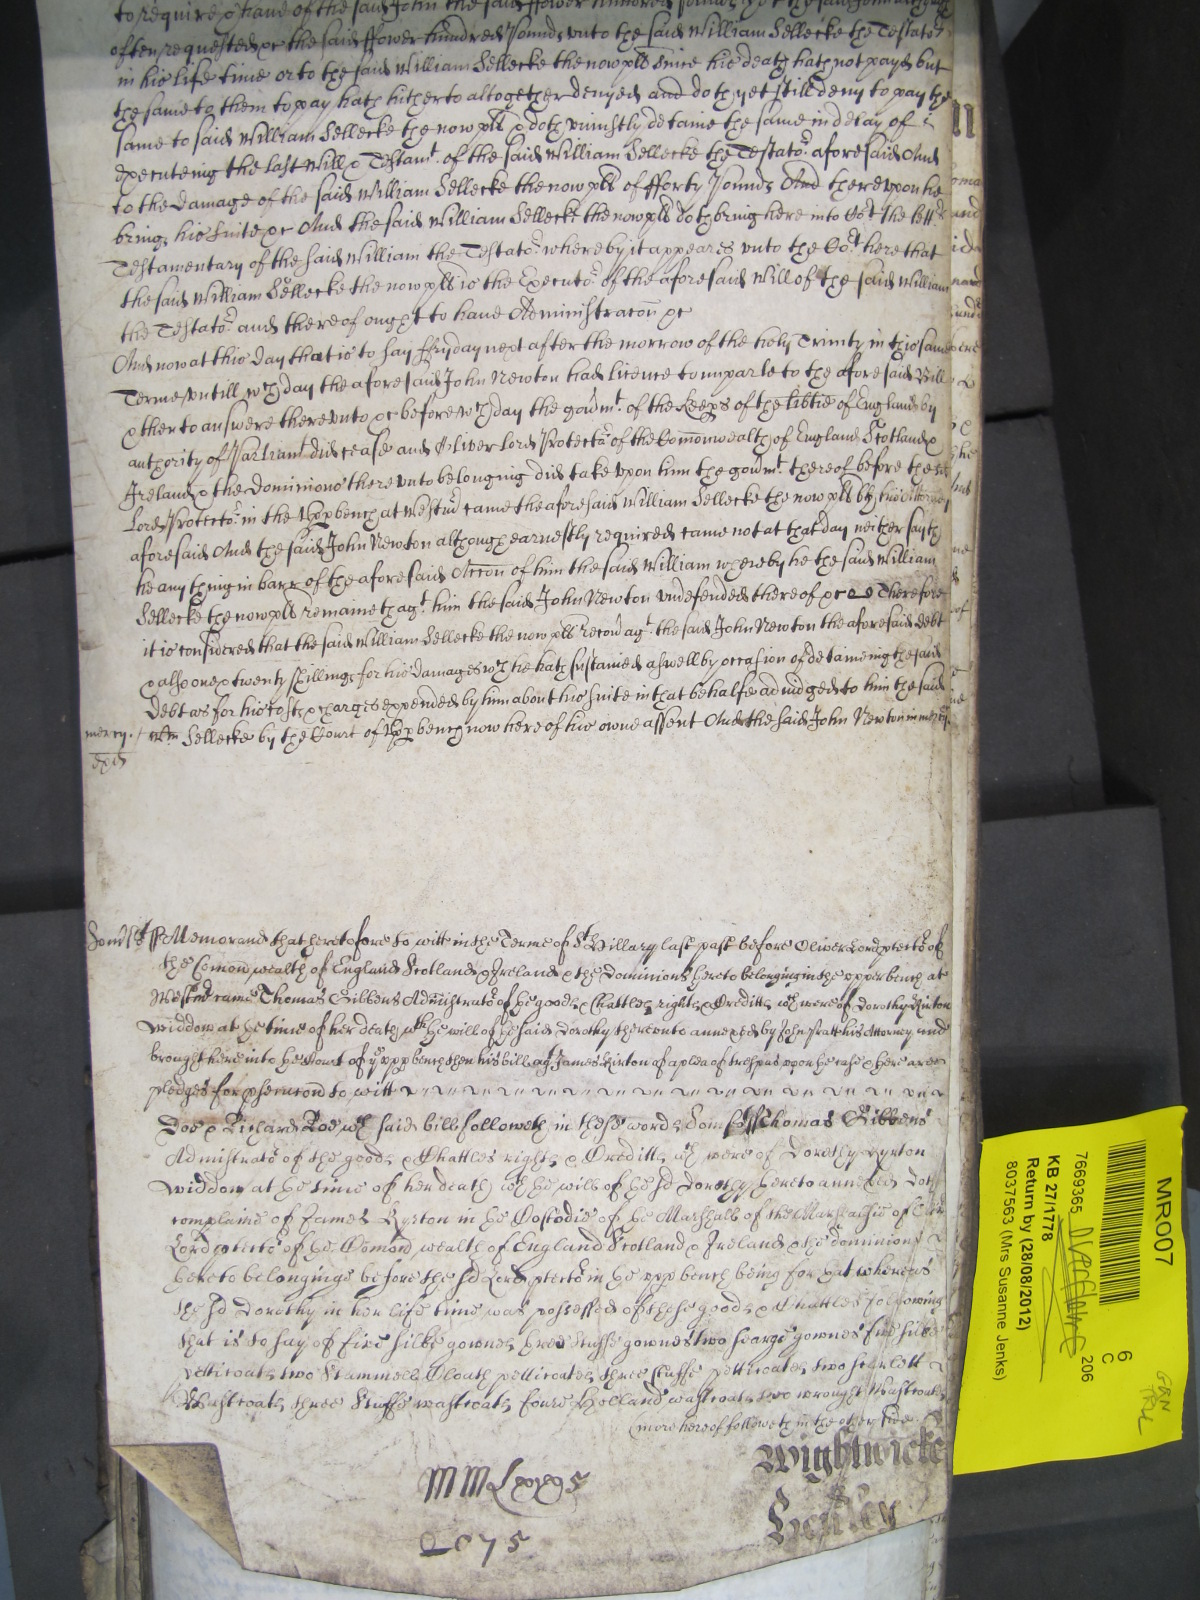 to require & haue of the said John the said ffower hundred
often requested &c the said ffower hundred Pounds vnto the said William Sellecke the Testator
in his life time or to the said William Sellecke the now plt since his death hath not payd but
the same to them to pay hath hitherto altogether denyed and doth yet still deny to pay the
same to said William Sellecke the now plt & doth vniustly detaine the same in delay of
executeing the last Will & Testamt. of the said William Sellecke the Testator. aforesaid And
to the damage of the said William Sellecke the now plt of fforty Pounds And therevpon he
brings his suite &c And the said William Sellecke the now plt doth bring here into Cot. the lett.
Testamentary of the said William the Testator. whereby it appeares vnto the Cot. here that
the said William Sellecke the now plt is the Executor. of the aforesaid Will of the said William
the Testator. and thereof ought to haue Administracon &c
And now at this day that is to say ffryday next after the morrow of the holy Trinity in this same
Terme vntill wch day the aforesaid John Newton had licence to imparle to the aforesaid Bill
& then to answere therevnto &c before wch day the govmt. of the Keeps of the libtie of England by
authority of Parliamt did cease and Oliver Lord Protector. of the Comonwealth of England Scotland &
Ireland & the dominions therevnto belonging did take vpon him the govmt. thereof before the sd
Lord Protector. in the Vpp bench at Westmr came the aforesaid William Sellecke the now plt by his Attorney
aforesaid And the said John Newton although earnestly required came not at that day neither sayth
he any thing in barr of the aforesaid Accon of him the said William whereby he the said William
Sellecke the now plt remaineth agt. him the said John Newton vndefended thereof &c Therefore
it is considered that the said William Sellecke the now plt recov agt. the said John Newton the aforesaid debt
& also one & twenty shillings for his damages wch he hath sustained aswell by occasion of detaineing the said
debt as for his costs & charges expended by him about his suite in that behalfe adiudged to him the said
mercy. / Wm Sellecke by the Court of Vpp bench now here of his owne assent And the said John Newton in mercy.
ss Memorand that heretofore to witt in the Terme of St Hillary last past before Oliver Lord ptector of
the Comon wealth of England Scotland & Ireland & the Dominions thereto belonging in the vpper bench at
Westmr came Thomas Gibbens Administrator of the goods & Chattles rights & Creditts wch were of Dorothy Kirton
widdow at the time of her death wth the will of the said Dorothy therevnto annexed by John Pratt his Attorney and
brought here into the Court of ye vpp bench then his bill agt James Kirton of a plea of trespas vpon the case & there are
pledges for phsecucon to witt
Doe & Richard Roe wch said bill followeth in these words ss Thomas Gibbens
Admistrator of the goods & Chattles rights & Creditts wch were of Dorothy Kyrton
widdow at the time of her death wth the will of the sd Dorothy thereto annexed
complaines of James Kyrton in the Costodie of the Marshall of the Marshalsie of
Lord ptector of the Comon wealth of England Scotland & Ireland & the dominions
thereto belonginge before the sd Lord ptector in the vpp bench being for that whereas
the sd Dorothy in her life time was possessed of these goods & Chattles following
that is to say of five silke gownes three stuffe gownes two searge gownes five silke
petticoates two Stammell Cloath petticoates three stuffe petticoates two scarlett
Wastcoats three Stuffe wastcoats foure Holland wastcoats two wrought Wastcoats
(more hereof followeth in the other side
Wightwicke
MMLxxv
2075
MR007
6
C
7669365
206
KB 27/1778
Return by (28/08/2012)
8037563 (Mrs Susanne Jenks)